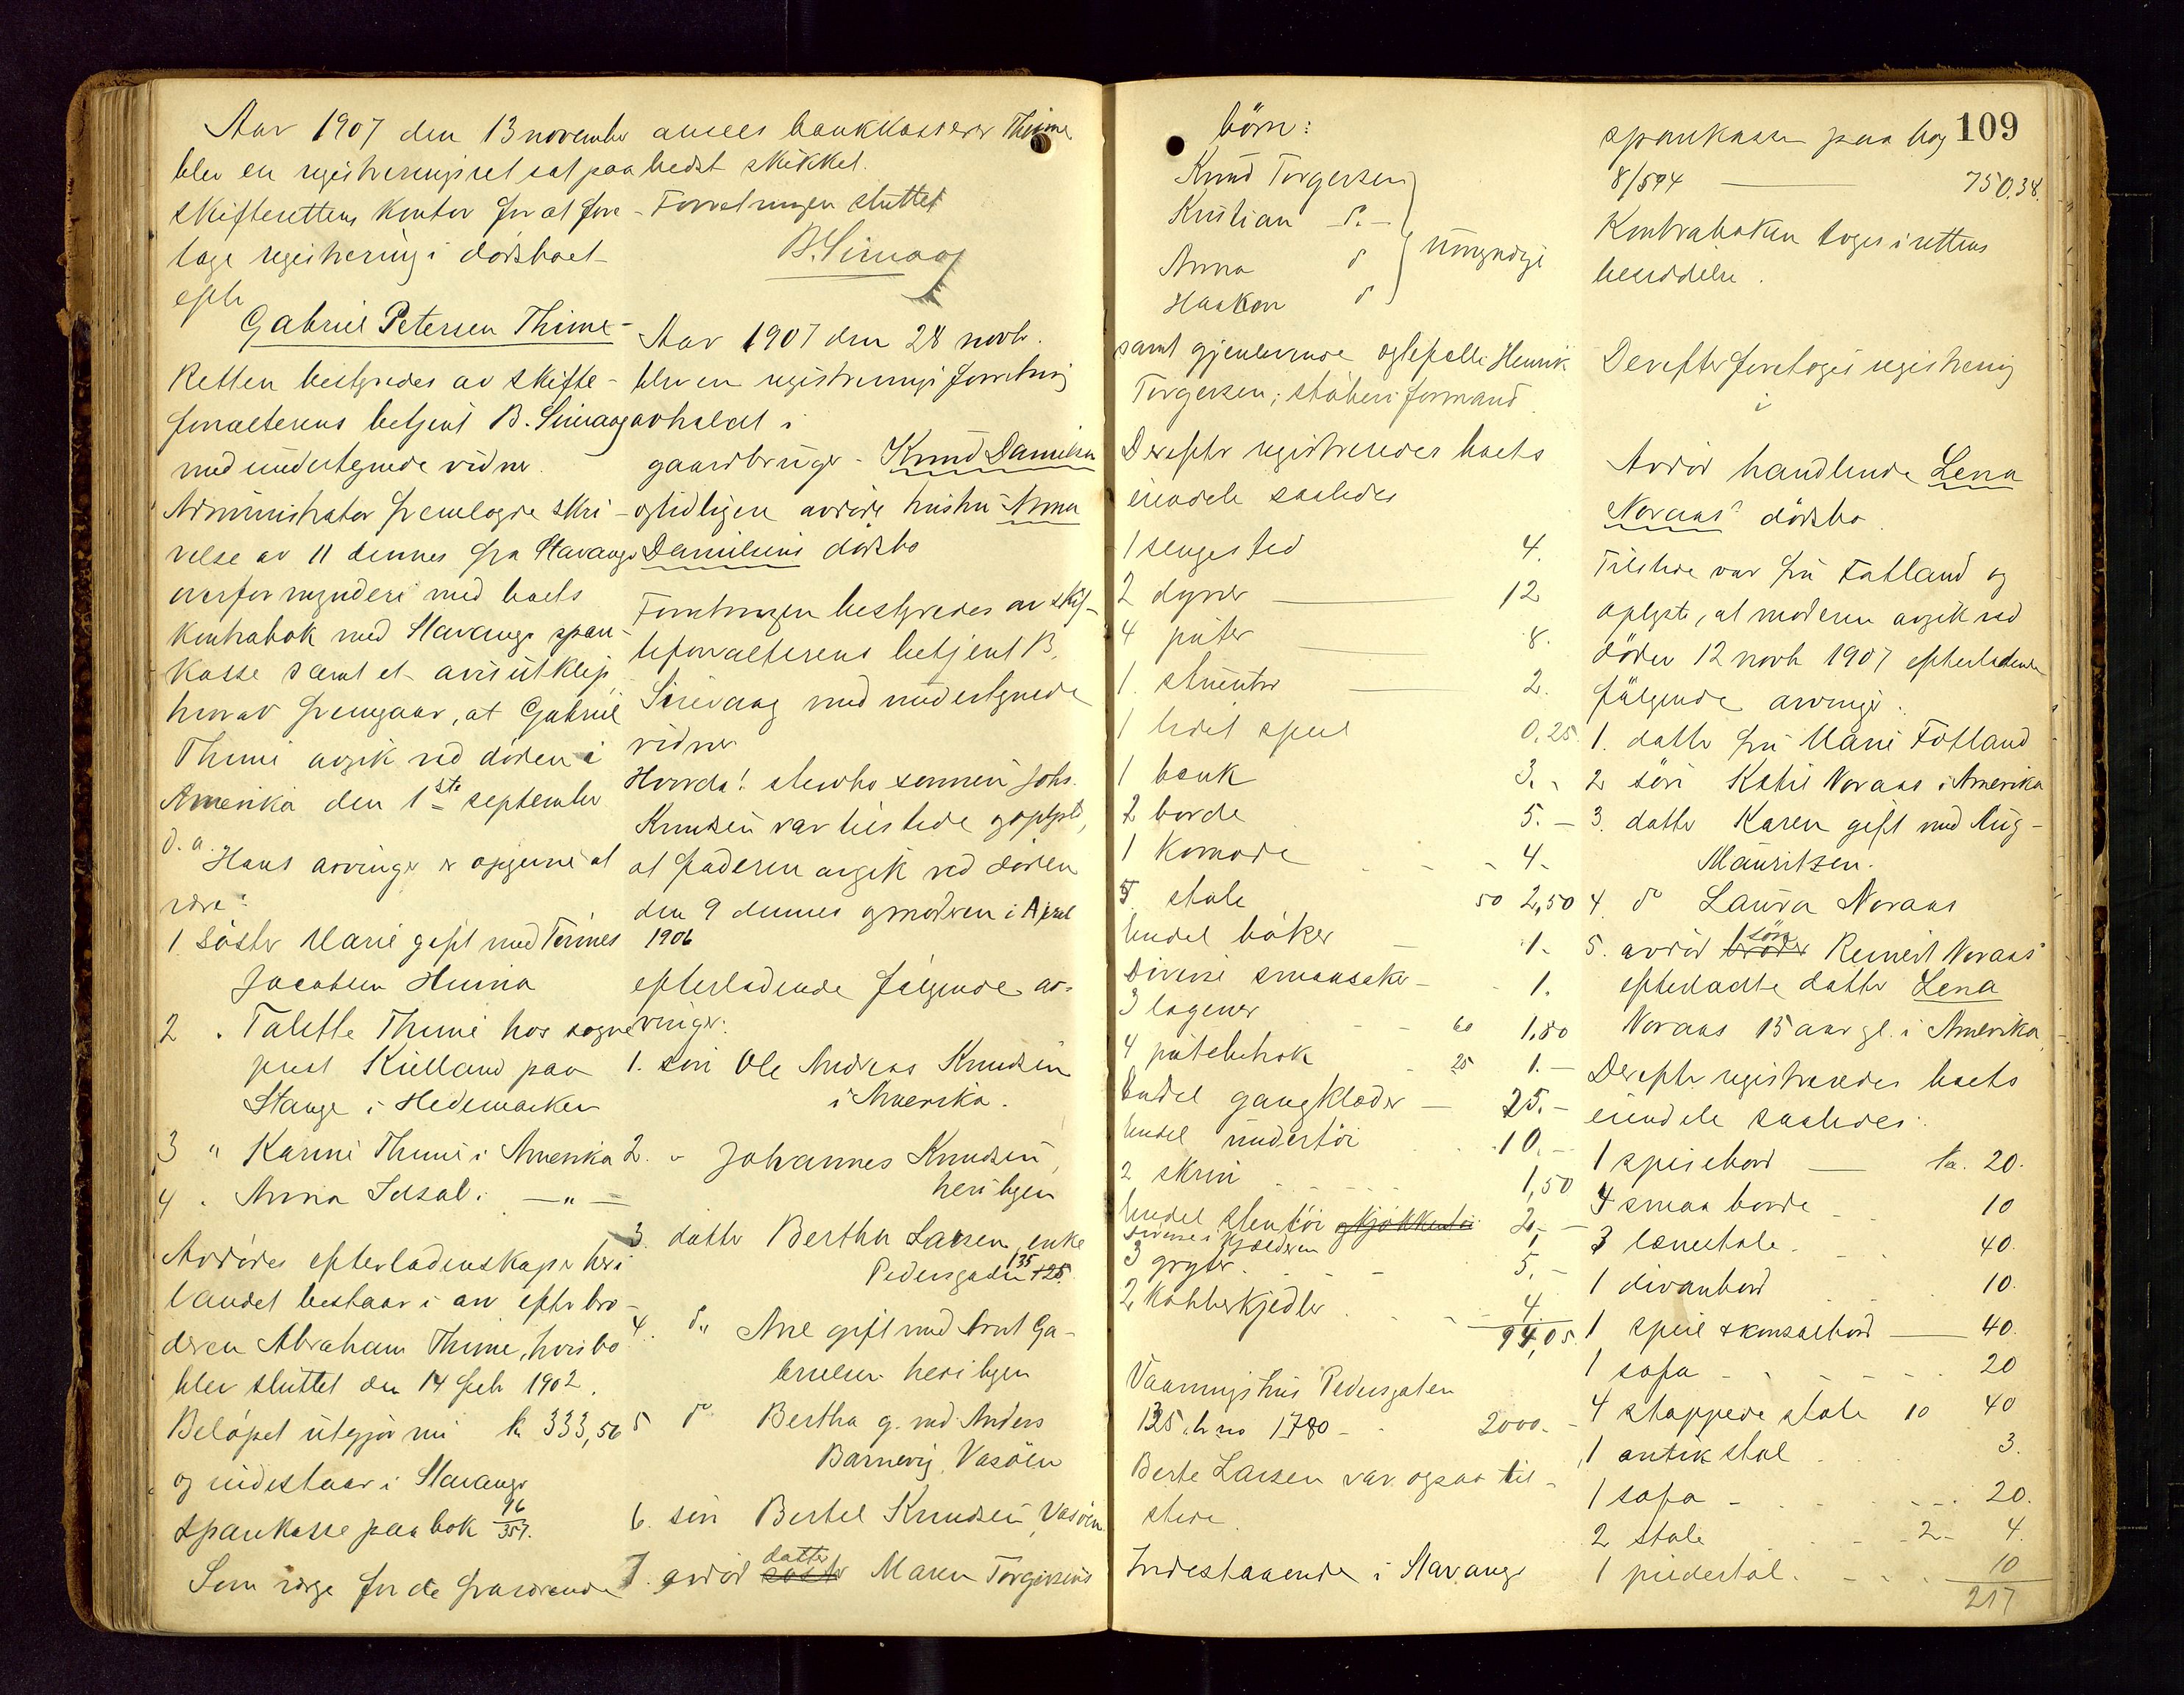 Aar 1907 den 13 november
blev en registreringsret sat paa
skifterettens kontor for at fore-
tage registrering i dødsboet
efter
Gabriel Petersen Thime
Retten bestyredes av skifte-
forvalterens betjent B. Sirevaag
med undertegnede vidner.
Administrator fremlagde skri-
velse av 11 dennes fra Stavanger
overformynderi med boets
kontrabok med Stavanger spare-
kasse samt et avisutklip,
hvorav fremgaar, at Gabriel
Thime avgik ved døden i
Amerika den 1ste september
d. a.
Hans arvinger er opgivne at
være:
1 søster Marie gift med Tønnes
Jacobsen Hinna
2 " Talette Thime hos sogne
prest Kielland paa
Stange i Hedemarken
3 " Karine Thime i Amerika
4 " Anna Idsal i — " —
Avdødes efterladenskaper her i
landet bestaar i arv efter bro-
deren Abraham Thime, hvis bo
blev sluttet den 14 feb 1902.
Beløpet utgjør nu kr 333,56
og indestaar i Stavanger
sparekasse paa bok 96/357.
Som værge for de fraværende
ansees bankkasserer Thime
bedst skikket.
Forretningen sluttet
B. Sirevaag
Aar 1907 den 28 novbr.
blev en registreringsforretning
avholdt i
gaardbruger Knud Danielsen
og tidligere avdøde hustru Anna
Danielsens dødsbo
Forretningen bestyredes av skif-
teforvalterens betjent B.
Sirevaag med undertegnede
vidner
Hvorda! stervbo sønnen Johs.
Knudsen var tilstede og oplyste,
at faderen avgik ved døden
den 9 dennes og moderen i April
1906
efterladende følgende ar-
vinger:
1. søn Ole Andreas Knudsen
i Amerika.
2. " Johannes Knudsen,
her i byen
3. datter Bertha Larsen, enke
Pedersgaden 135 125.
4. do Ane gift med Arnt Ga-
brielsen her i byen
5 do Bertha g. med Anders
Barnevig, Vasøen
6. søn Bertel Knudsen, Vasøen
7. avdød datter søster Maren Torgersens
109
børn:
Knud Torgersen
Kristian do —
Anna do
Haakon do
umyndige
samt gjenlevende egtefælle Henrik
Torgersen, støberiformand
Derefter registreredes boets
eiendele saaledes
1 sengested 4.
2 dyner — 12
4 puter 8.
1 struntov — 2.
1 lidet speil 0,25.
1 bænk 3.
2 borde 5. —
1 komode 4 -
5 stole 50 2,50
Endel bøker — 1.
Diverse smaasaker — 1.
3 lagener 60 1,80
4 putetræk 25 1. —
Endel gangklæder — 25. —
Endel undertøi 10. —
2 skrin 1,50
Endel stentøi og kjøkkentøi 2. —
Diverse i kjælderen 1
3 gryter 5. —
2 kobberkjedler 4.
94,05.
Vaaningshus Pedersgaten
135, br no 1780 — 2000. —
Berte Larsen var ogsaa til-
stede.
Indestaaende i Stavanger
sparekasse paa bog
8/594 — 750.38.
Kontraboken toges i rettens
besiddelse.
Derefter foretoges registrering
i
Avdød handlende Lena
Noraas' dødsbo.
Tilstede var fru Fotland og
oplyste, at moderen avgik ved
døden 12 novbr 1907 efterladende
følgende arvinger:
1. datter fru Marie Fotland
2 søn Katil Noraas i Amerika
3. datter Karen gift med Aug-
Mauritzen.
4. do Laura Noraas
5. avdød søn broder Reinert Noraas'
efterladte datter Lena
Noraas 15 aar gl. i Amerika
Derefter registreredes boets
eiendele saaledes:
1 spisebord — kr. 20.
4 smaa borde — 10
3 lænestole. 40.
1 divanbord 10.
1 speil & konsolbord — 40.
1 sofa 20
4 stoppede stole 10 40
1 antik stol 3.
1 sofa 20.
2 stole 2 - 4.
1 piedestal. 10
217